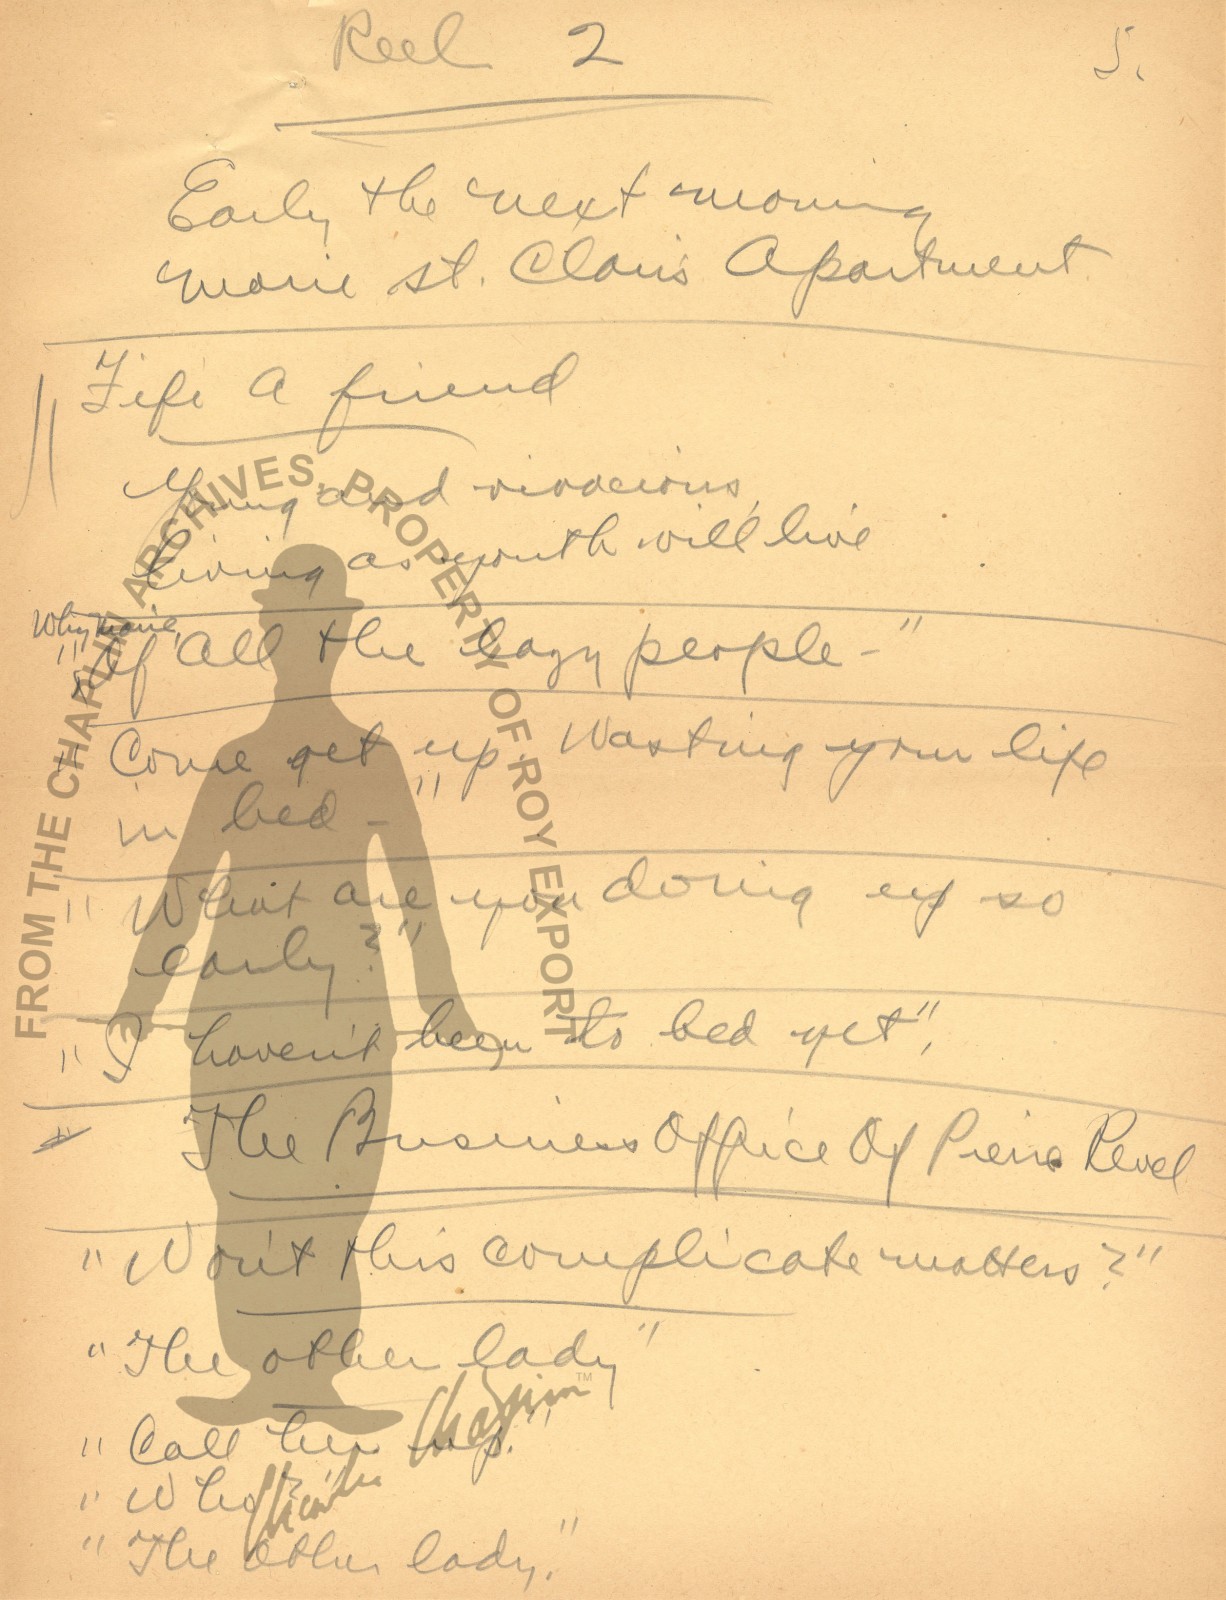 Reel 2
5.
Early the next morning
Marie St. Clair's Apartment
Fifi A friend
Young and vivacious,
living as youth will live
Why Marie,
"Of all the lazy people-"
"Come get up. Wasting your life
in bed-"
"What are you doing up so
early?"
"I haven't been to bed yet".
The Business Office Of Pierre Revel
"Won't this complicate matters?"
"The other lady"
"Call her up."
"Who?"
"The other lady."
FROM THE CHAPLIN ARCHIVES, PROPERTY OF ROY EXPORT
Charlie Chaplin ™